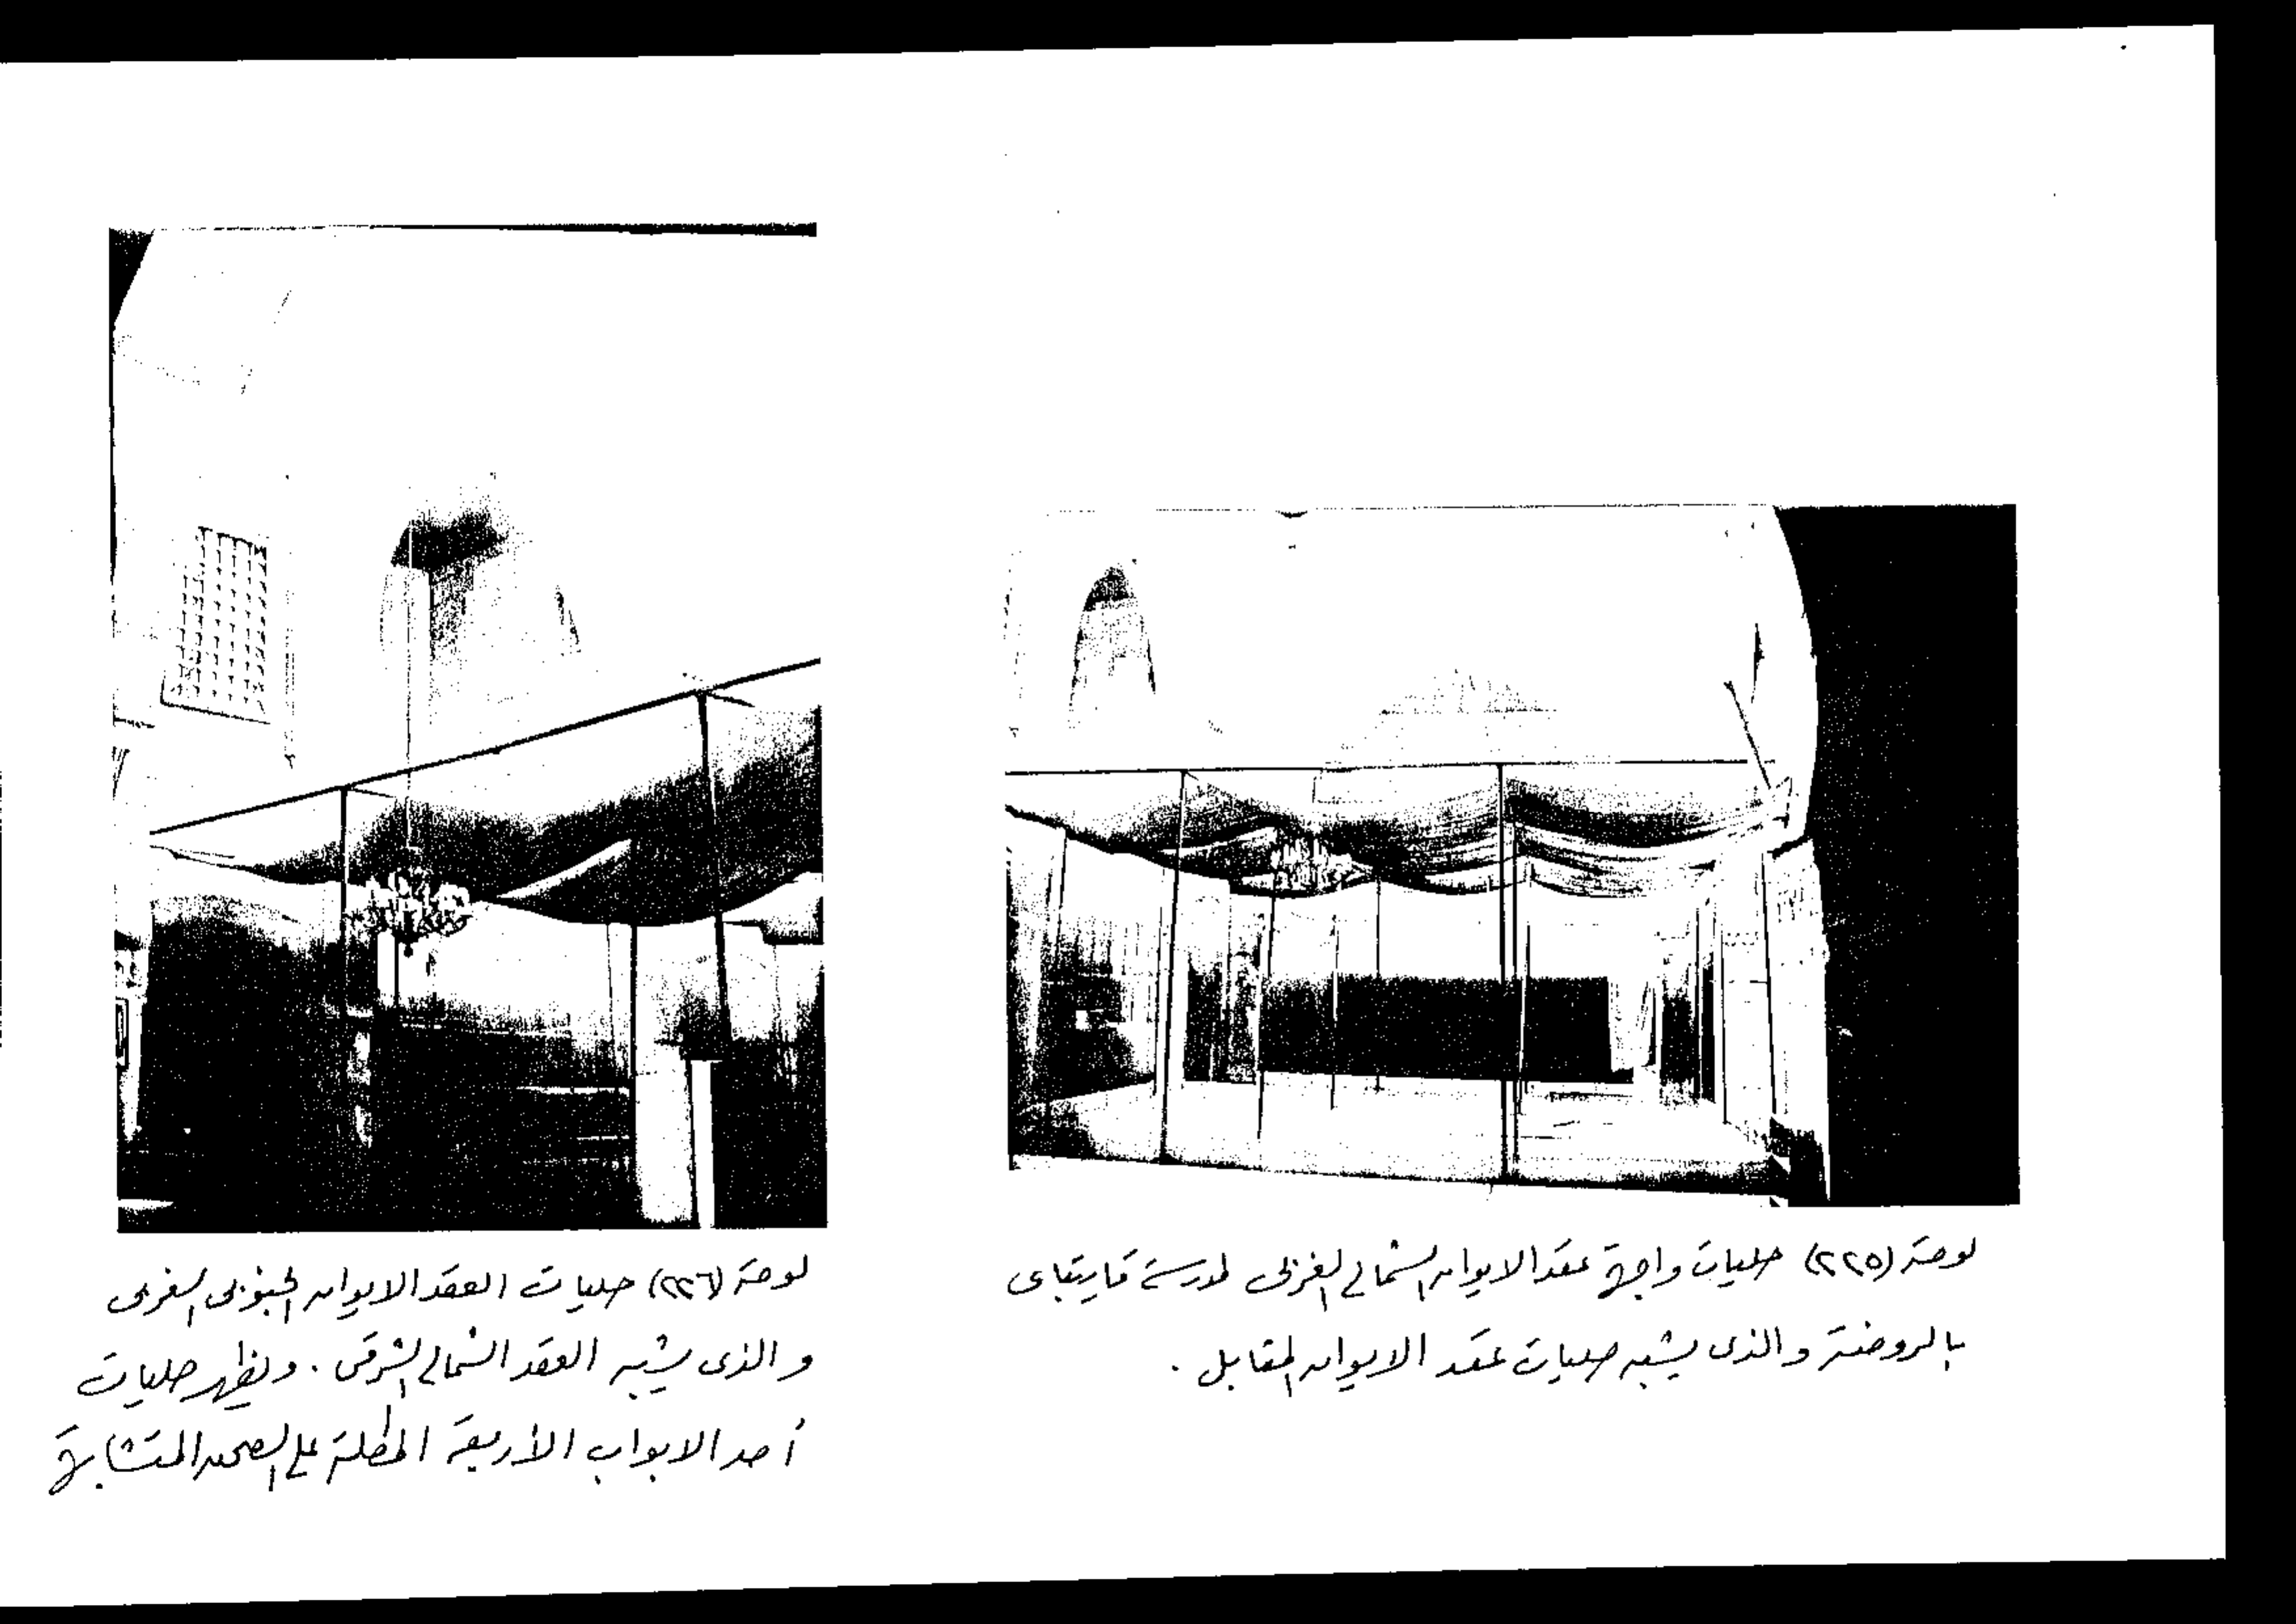 لوحة (٢٢٥) حليات واجهة عقد الايوان الشمالى الغربى لمدرسة قايتباى
بالروضة والذى يشبه حليات عقد الايوان المقابل .
لوحة (٢٢٦) حليات العقد الايوان الجنوبى الغربى
والذى يشبه العقد الشمالى الشرقى . ويظهر حليات
أحد الابواب الأربعة المطلة على الصحن المتشابهة